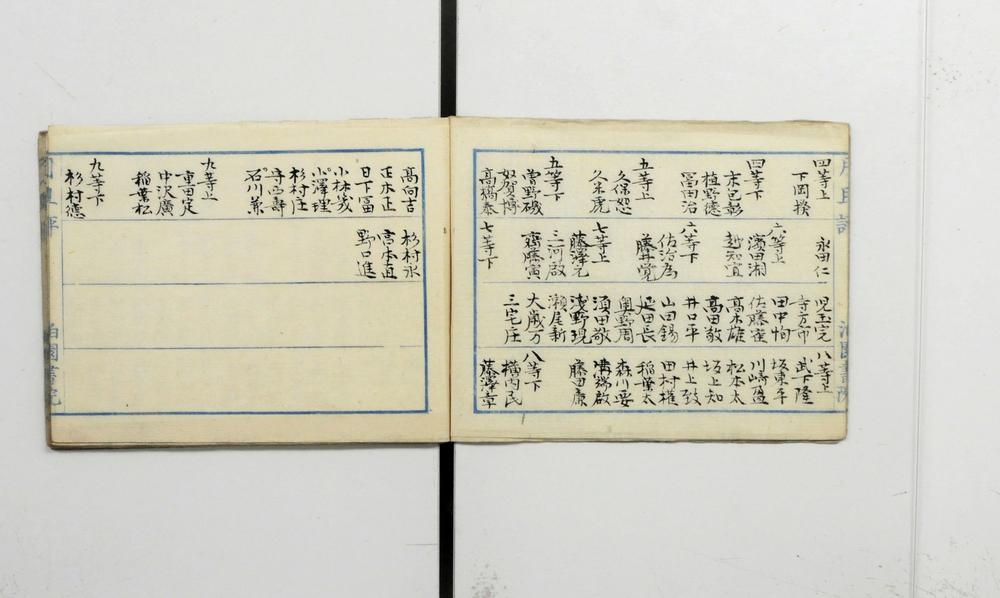 月旦評
泊園書院
四等上
下岡揆
四等下
末包彰
植野德
冨田治
五等上
久保恕
久米虎
五等下
曽野磯
奴賀博
高橋泰
永田仁一
六等上
濵田湘
越知宜
六等下
佐治為
藤井覚
七等上
藤澤元
三河啟
齋藤寅
七等下
児玉完
寺方市
田中恂
佐藤寉
高木雄
高田敬
井口平
山田錫
延田長
奥野周
須田敬
淺野現
瀬尾新
大歳万
三宅庄
八等上
武下隆
坂東平
川崎盛
松本太
坂上知
井上致
田村權
稲葉太
森川妥
溝端啟
藤田康
八等下
横内民
藤澤章
高向吉
正木正
日下冨
小林歲
小澤理
杉村庄
壽
石川兼
九等上
重田定
中沢廣
稲葉松
九等下
杉村德
杉村永
宮本直
野口進
月旦評
泊園書院